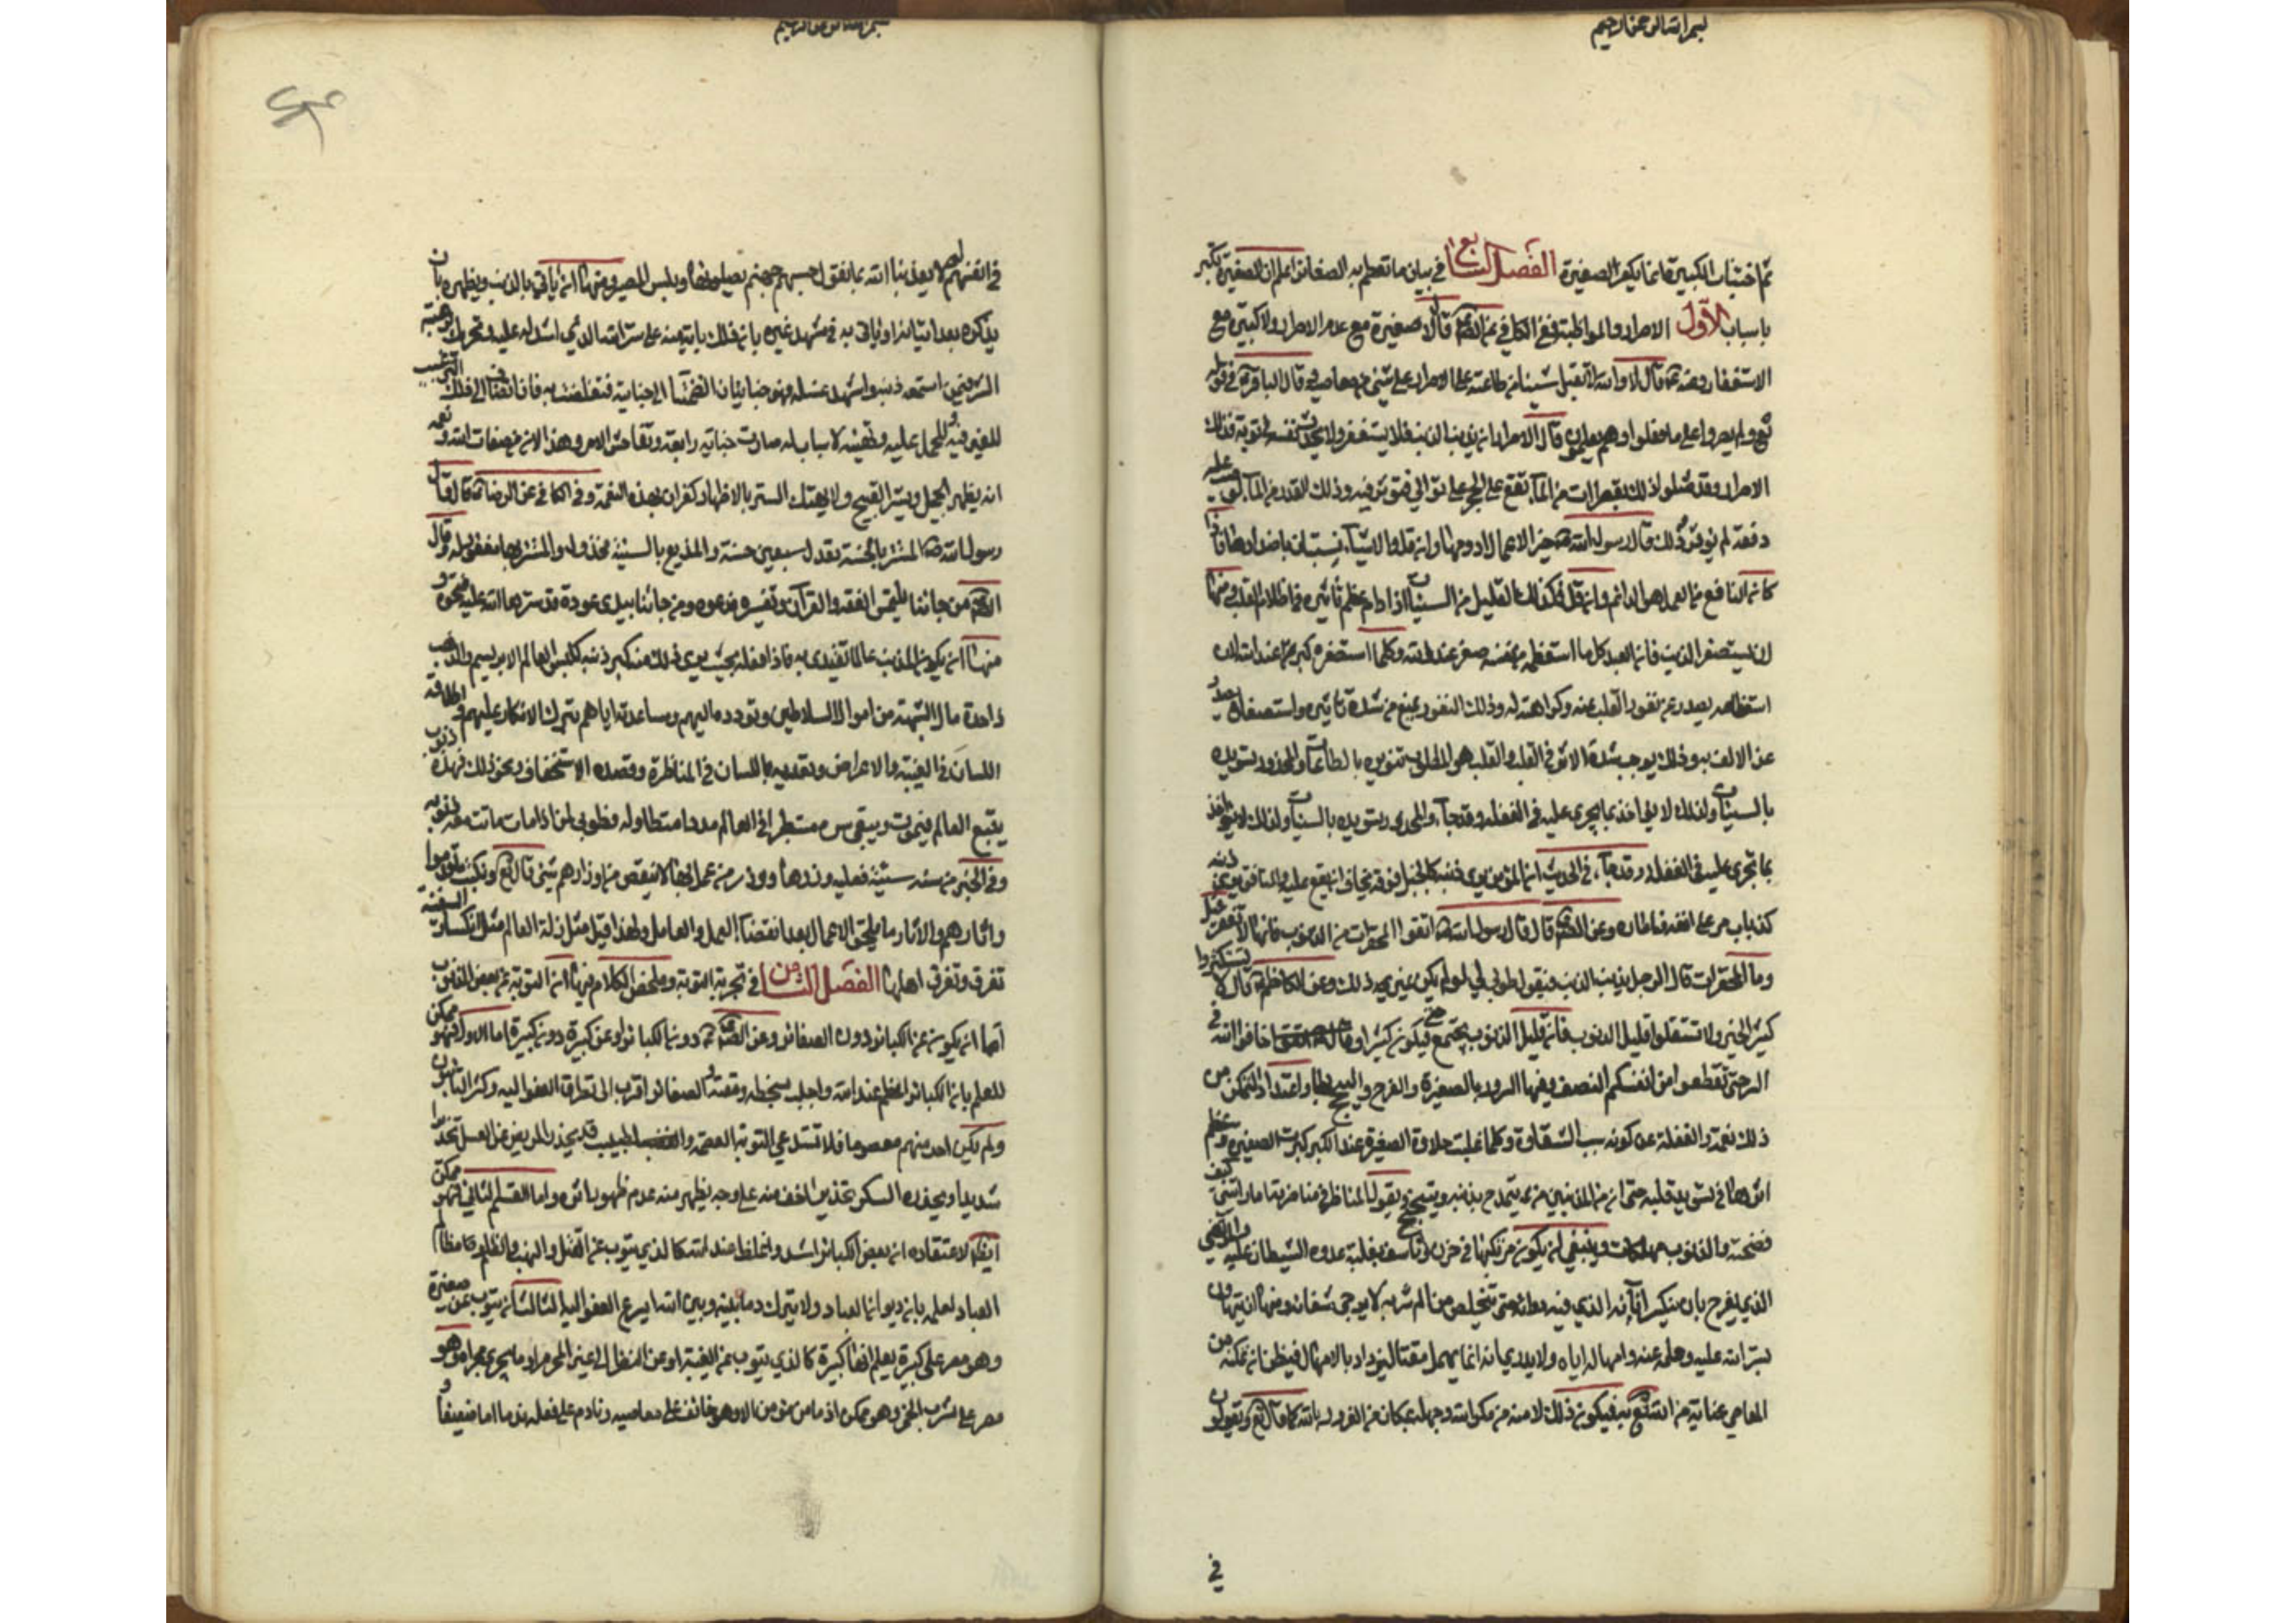 بسم الله الرحمن الرحيم
ثم اجتناب الكبيرة انما يكفر الصغيرة الفصل السابع في بيان ما تعظم به الصغائر اعلم ان الصغيرة تكبر
باسباب الاول الاصرار والمواظبة ففي الكافي عن الصم قال لا صغيرة مع عدم الاصرار ولا كبيرة مع
الاستغفار وعنه قال لا والله لا يقبل الله شيئا من طاعته على الاصرار على شئ من معاصيه وقال الباقر في قوله
تع ولم يصروا على ما فعلوا وهم يعلمون قال الاصرار ان يذنب الذنب فلا يستغفر ولا يحدث نفسه بتوبة فذلك
الاصرار وقد مثلوا ذلك بقطرات من الماء تقع على الحجر على توالي فتؤثر فيه وذلك القدر من الماء لو صب عليه
دفعة لم يؤثر ولذلك قال رسول الله ص خير الاعمال ادومها وان قل والاشياء تستبان باضدادها فاذا
كان النافع من العمل هو الدائم وان قل فكذلك القليل من السيئات اذا دام عظم تأثيره في اظلام القلب منها
ان يستصغر الذنب فان العبد كلما استعظمه من نفسه صغر عند الله وكلما استصغره كبر عند الله لان
استعظامه يصدر عن نفور القلب عنه وكراهته له وذلك النفور يمنع من شدة تأثيره واستصغاره يصدر
عن الالف به وذلك يوجب شدة الاثر في القلب والقلب هو المطلوب تنويره بالطاعات والمحذور تسويده
بالسيئات ولذلك لا يؤاخذ بما يجري عليه في الغفلة
بما يجري عليه في الغفلة وقد جاء في الحديث ان المؤمن يرى ذنبه كالجبل فوقه يخاف ان يقع عليه والمنافق يرى ذنبه
كذباب مر على انفه فاطاره وعن الصم قال قال رسول الله ص اتقوا المحقرات من الذنوب فانها لا تغفر قيل
وما المحقرات قال الرجل يذنب الذنب فيقول طوبى لي لو لم يكن غير ذلك وعن الكاظم قال لا تستكثروا
كثير الخير ولا تستقلوا قليل الذنوب فان قليل الذنوب يجتمع حتى فيكون كثيرا وخافوا الله في
السر حتى تعطوا من انفسكم النصف ومنها السرور بالصغيرة والفرح واعتداد التمكن من
ذلك نعمة والغفلة عن كونه سبب الشقاوة وكلما غلبت حلاوة الصغيرة عند الكبر كبرت الصغيرة وعظم
اثرها في تسويد قلبه حتى ان من المذنبين من يتمدح بذنبه ويتبجح ويقول المناظر في مناظرته اما رأيتني كيف
فضحته والذنوب مهلكات وينبغي ان يكون مرتكبها في حزن وتأسف بغلبة عدوه الشيطان عليه والمريض
الذي يفرح بان ينكسر اناؤه الذي فيه دوائه حتى يتخلص من الم شربه لا يرجى شفائه ومنها ان يتهاون
بستر الله عليه وحلمه عنه وامهاله اياه ولا يدري انه انما يمهل مقتا ليزداد بالامهال فيظن ان تمكنه من
المعاصي عناية من الله تع به فيكون ذلك لامنه من مكر الله وجهله بمكان من الغرور بالله كما قال تع ويقولون
في
بسم الله الرحمن الرحيم
في انفسهم لولا يعذبنا الله بما نقول حسبهم جهنم يصلونها وبئس المصير ومنها ان يأتي بالذنب ويظهره بان
يذكره بعد اتيانه او يأتي به في مشهد غيره بان ذلك جناية منه على ستر الله الذي اسدله عليه وتحريك لرغبة
الشر فيمن اسمعه ذنبه او اشهده فعله فهو جنايتان انضمتا الى جنايته فتغلظت به فان انضاف الى ذلك الترغيب
للغير فيه والحمل عليه وتهيئة الاسباب له صارت جنايته رابعة وتفاحش الامر وهذا لان من صفات الله ونعمه
انه يظهر الجميل ويستر القبيح ولا يهتك الستر بالاظهار كفران بهذه النعمة وفي الكافي عن الرضا قال قال
رسول الله ص المستتر بالحسنة يعدل سبعين حسنة والمذيع بالسيئة مخذول والمستتر بها مغفور له وقال
الصم من جائنا يلتمس الفقه والقرآن وتفسيره فدعوه ومن جائنا يبدي عورة قد سترها الله عليه فنحوه و
منها ان يكون المذنب عالما يقتدى به فاذا فعله بحيث يرى ذلك منه كبر ذنبه كلبس العالم الابريسم والذهب
واخذه مال الشبهة من اموال السلاطين وتردده اليهم ومساعدته اياهم بترك الانكار عليهم واطلاقه
اللسان في الغيبة والاعراض وتعديه باللسان في المناظرة وقصده الاستخفاف ونحو ذلك فهذه ذنوب
يتبع العالم فيموت ويبقى شره مستطيرا في العالم مددا متطاولة فطوبى لمن اذا مات ماتت معه ذنوبه
وفي الخبر من سن سنة سيئة فعليه وزرها ووزر من عمل بها لا ينقص من اوزارهم شئ قال تع ونكتب ما قدموا
واثارهم والاثار ما يلحق الاعمال بعد انقضاء العمل والعامل ولهذا قيل مثل زلة العالم مثل انكسار السفينة
تغرق وتغرق اهلها الفصل الثامن في تجزية التوبة وملخص الكلام فيها ان التوبة عن بعض الذنوب
اما ان يكون عن الكبائر دون الصغائر وعن الصم دون الكبائر او عن كبيرة دون كبيرة اما الاول فهو ممكن
للعلم بان الكبائر اعظم عند الله واجلب لسخطه ومقته والصغائر اقرب الى تطرق العفو اليه وكثر التائبون
ولم يكن احد منهم معصوما فلا تستدعي التوبة العصمة والطبيب قد يحذر المريض عن العسل تحذيرا
شديدا ويحذره السكر تحذيرا اخف منه على وجه يظهر منه عدم ظهور اثره واما القسم الثاني فهو ممكن
ايضا لاعتقاده ان بعض الكبائر اشد واغلظ عند الله كالذي يتوب عن القتل والنهب والظلم ومظالم
العباد لعلمه بان ديوان العباد لا يترك وما بينه وبين الله يسرع العفو اليه الثالث ان يتوب عن صغيرة
وهو مصر على كبيرة يعلم انها كبيرة كالذي يتوب عن الغيبة او عن النظر الى غير المحرم او ما يجري مجراه وهو
مصر على شرب الخمر وهو ممكن اذ ما من مؤمن الا وهو خائف على معاصيه ونادم على فعله ندما اما ضعيفا و